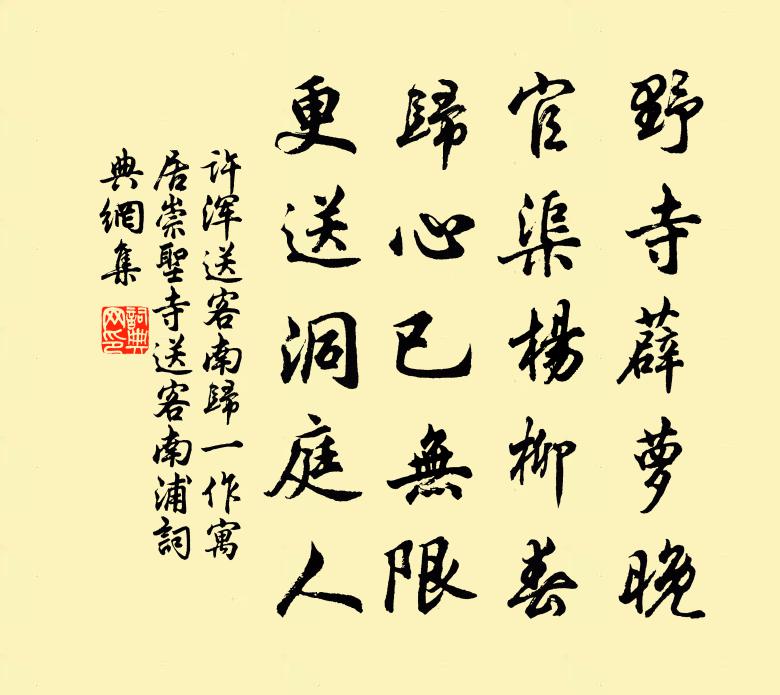 野寺薜夢晚
官渠楊柳春
歸心已無限
更送洞庭人
許渾送客南歸一作寓
居崇聖寺送客南浦詞
典網集
詞典
网印